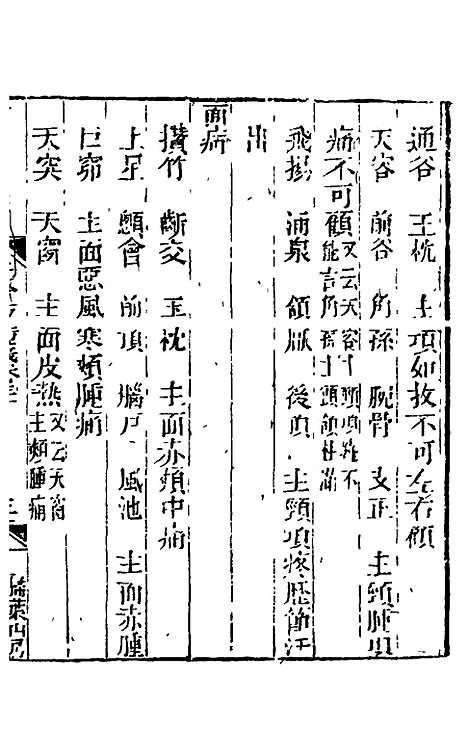 通谷　玉枕　主項如拔不可左右顧
天容　前谷　角孫　腕骨　支正　主頸腫項
痛不可顧又云天容主頸項癰不能言角孫主頸頷柱滿
飛揚　涌泉　頷厭　後頂　主頸項疼歷節汗
出
面病
攢竹　齗交　玉枕　主面赤頰中痛
上星　顖會　前頂　腦戶　風池　主面赤腫
巨窌　主面惡風寒頰腫痛
天突　天窗　主面皮熱又云天窗主頰腫痛
掃葉山房